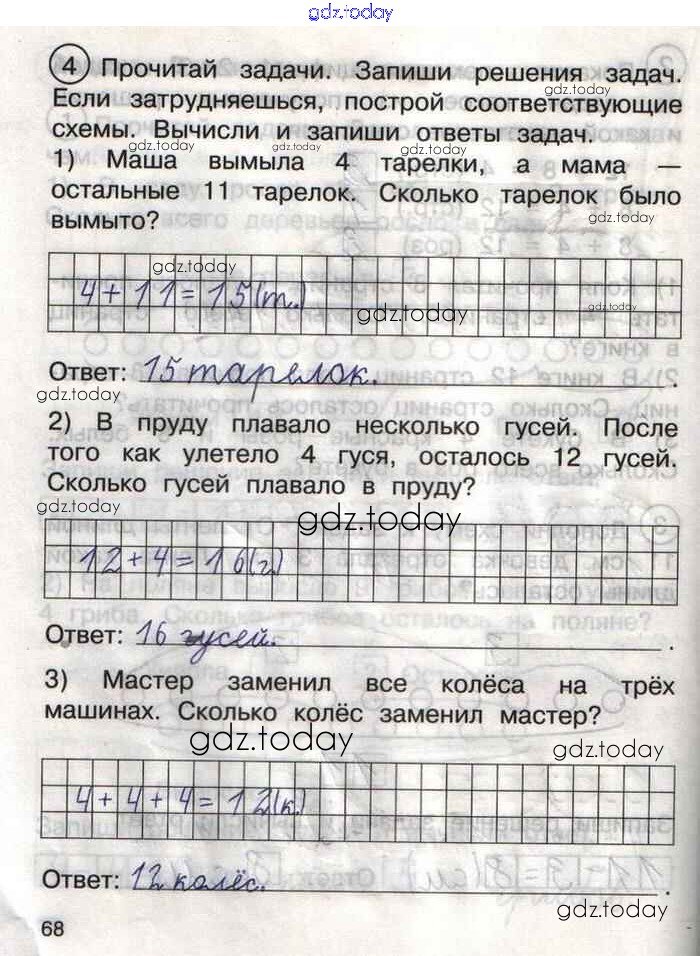 gdz.today
4 Прочитай задачи. Запиши решения задач.
gdz.today
Если затрудняешься, построй соответствующие
схемы. Вычисли и запиши ответы задач.
gdz.today
1) Маша вымыла 4 тарелки, а мама —
gdz.today
остальные 11 тарелок. Сколько тарелок было
вымыто?
gdz.today
gdz.today
4+11=15(т.)
gdz.today
gdz.today
Ответ: 15 тарелок.
gdz.today
gdz.today
2) В пруду плавало несколько гусей. После
того как улетело 4 гуся, осталось 12 гусей.
Сколько гусей плавало в пруду?
gdz.today
gdz.today
12+4=16(г.)
gdz.today
gdz.today
Ответ: 16 гусей.
3) Мастер заменил все колёса на трёх
машинах. Сколько колёс заменил мастер?
gdz.today
gdz.today
4+4+4=12(к.)
gdz.today
gdz.today
Ответ: 12 колёс.
gdz.today
68